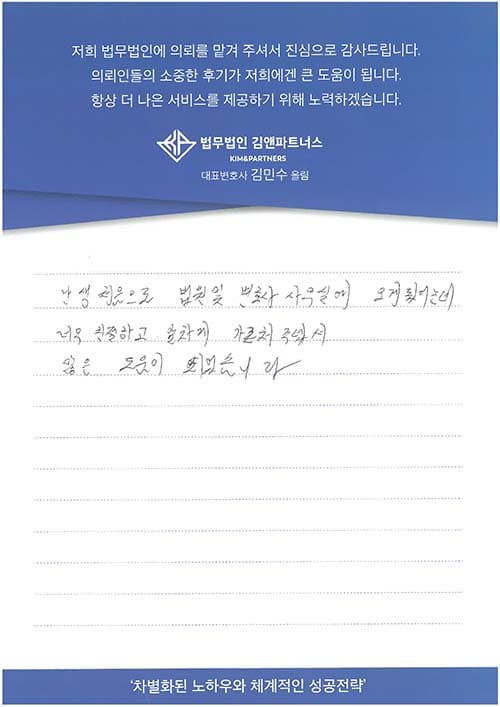 저희 법무법인에 의뢰를 맡겨 주셔서 진심으로 감사드립니다.
의뢰인들의 소중한 후기가 저희에겐 큰 도움이 됩니다.
항상 더 나은 서비스를 제공하기 위해 노력하겠습니다.
법무법인 김앤파트너스
KIM&PARTNERS
대표변호사 김민수 올림
난생 처음으로 법원 및 변호사 사무실에 오게 되었는데
너무 친절하고 알차게 가르쳐 주셔서
많은 도움이 되었습니다
'차별화된 노하우와 체계적인 성공전략'